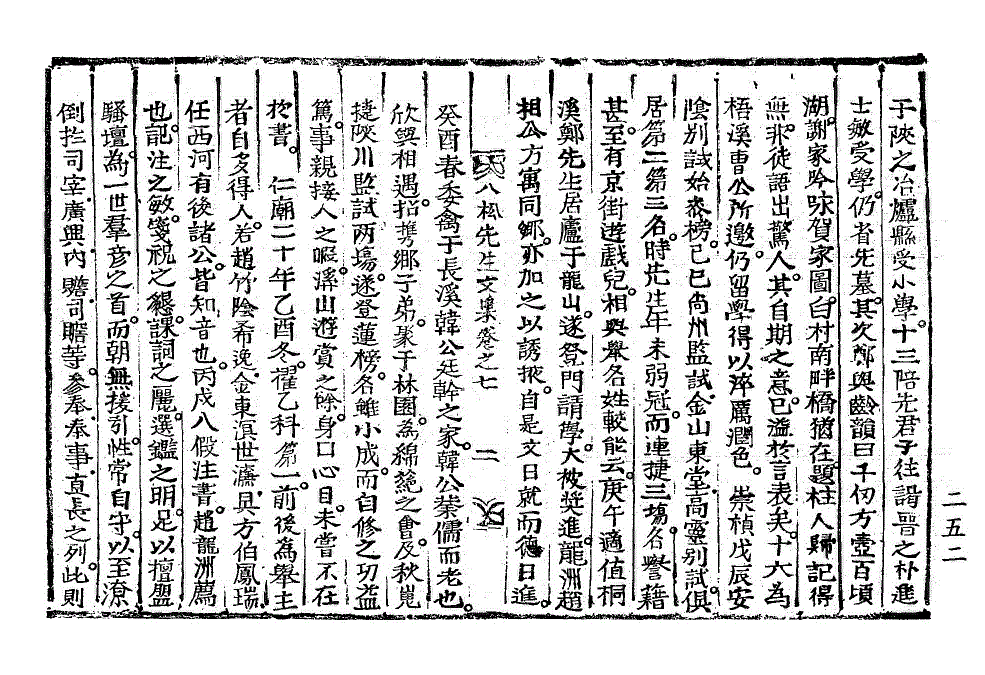 于陜之冶爐縣受小學十三陪先君子往謁晉之朴進
士敏受學仍省先墓其次鄭與齡韻曰千仞方壺百頃
湖謝家吟咏賀家圖臼村南畔橋猶在題柱人歸記得
無非徒語出驚人其自期之意已溢於言表矣十六為
梧溪曺公所邀仍留學得以淬厲潤色 崇楨戊辰安
陰别試始參榜己巳尙州監試金山東堂高靈别試俱
居第二第三名時先生年未弱冠而連捷三場名譽藉
甚至有京街遊戲兒相與擧名姓較能云庚午適值桐
溪鄭先生居廬于龍山遂登門請學大被奬進龍洲趙
相公方寓同鄉亦加之以誘掖自是文日就而德日進
八松先生文集卷之七 二
癸酉春委禽于長溪韓公廷幹之家韓公業儒而老也
欣與相遇招携鄉子弟聚于林園為綿蕝之會及秋嵬
捷陜川監試兩場遂登蓮榜名雖小成而自修之功益
篤事親接人之暇溪山遊賞之餘身口心目未嘗不在
於書 仁廟二十年乙酉冬擢乙科第一前後為擧主
者自多得人若趙竹陰希逸金東溟世濂具方伯鳳瑞
任西河有後諸公皆知音也丙戌八假注書趙龍洲薦
也記注之敏箋祝之懇課詞之麗選鑑之明足以擅盟
騷壇為一世羣彦之首而朝無援引性常自守以至潦
倒於司宰廣興內贍司贍等參奉奉事直長之列此則
二五二